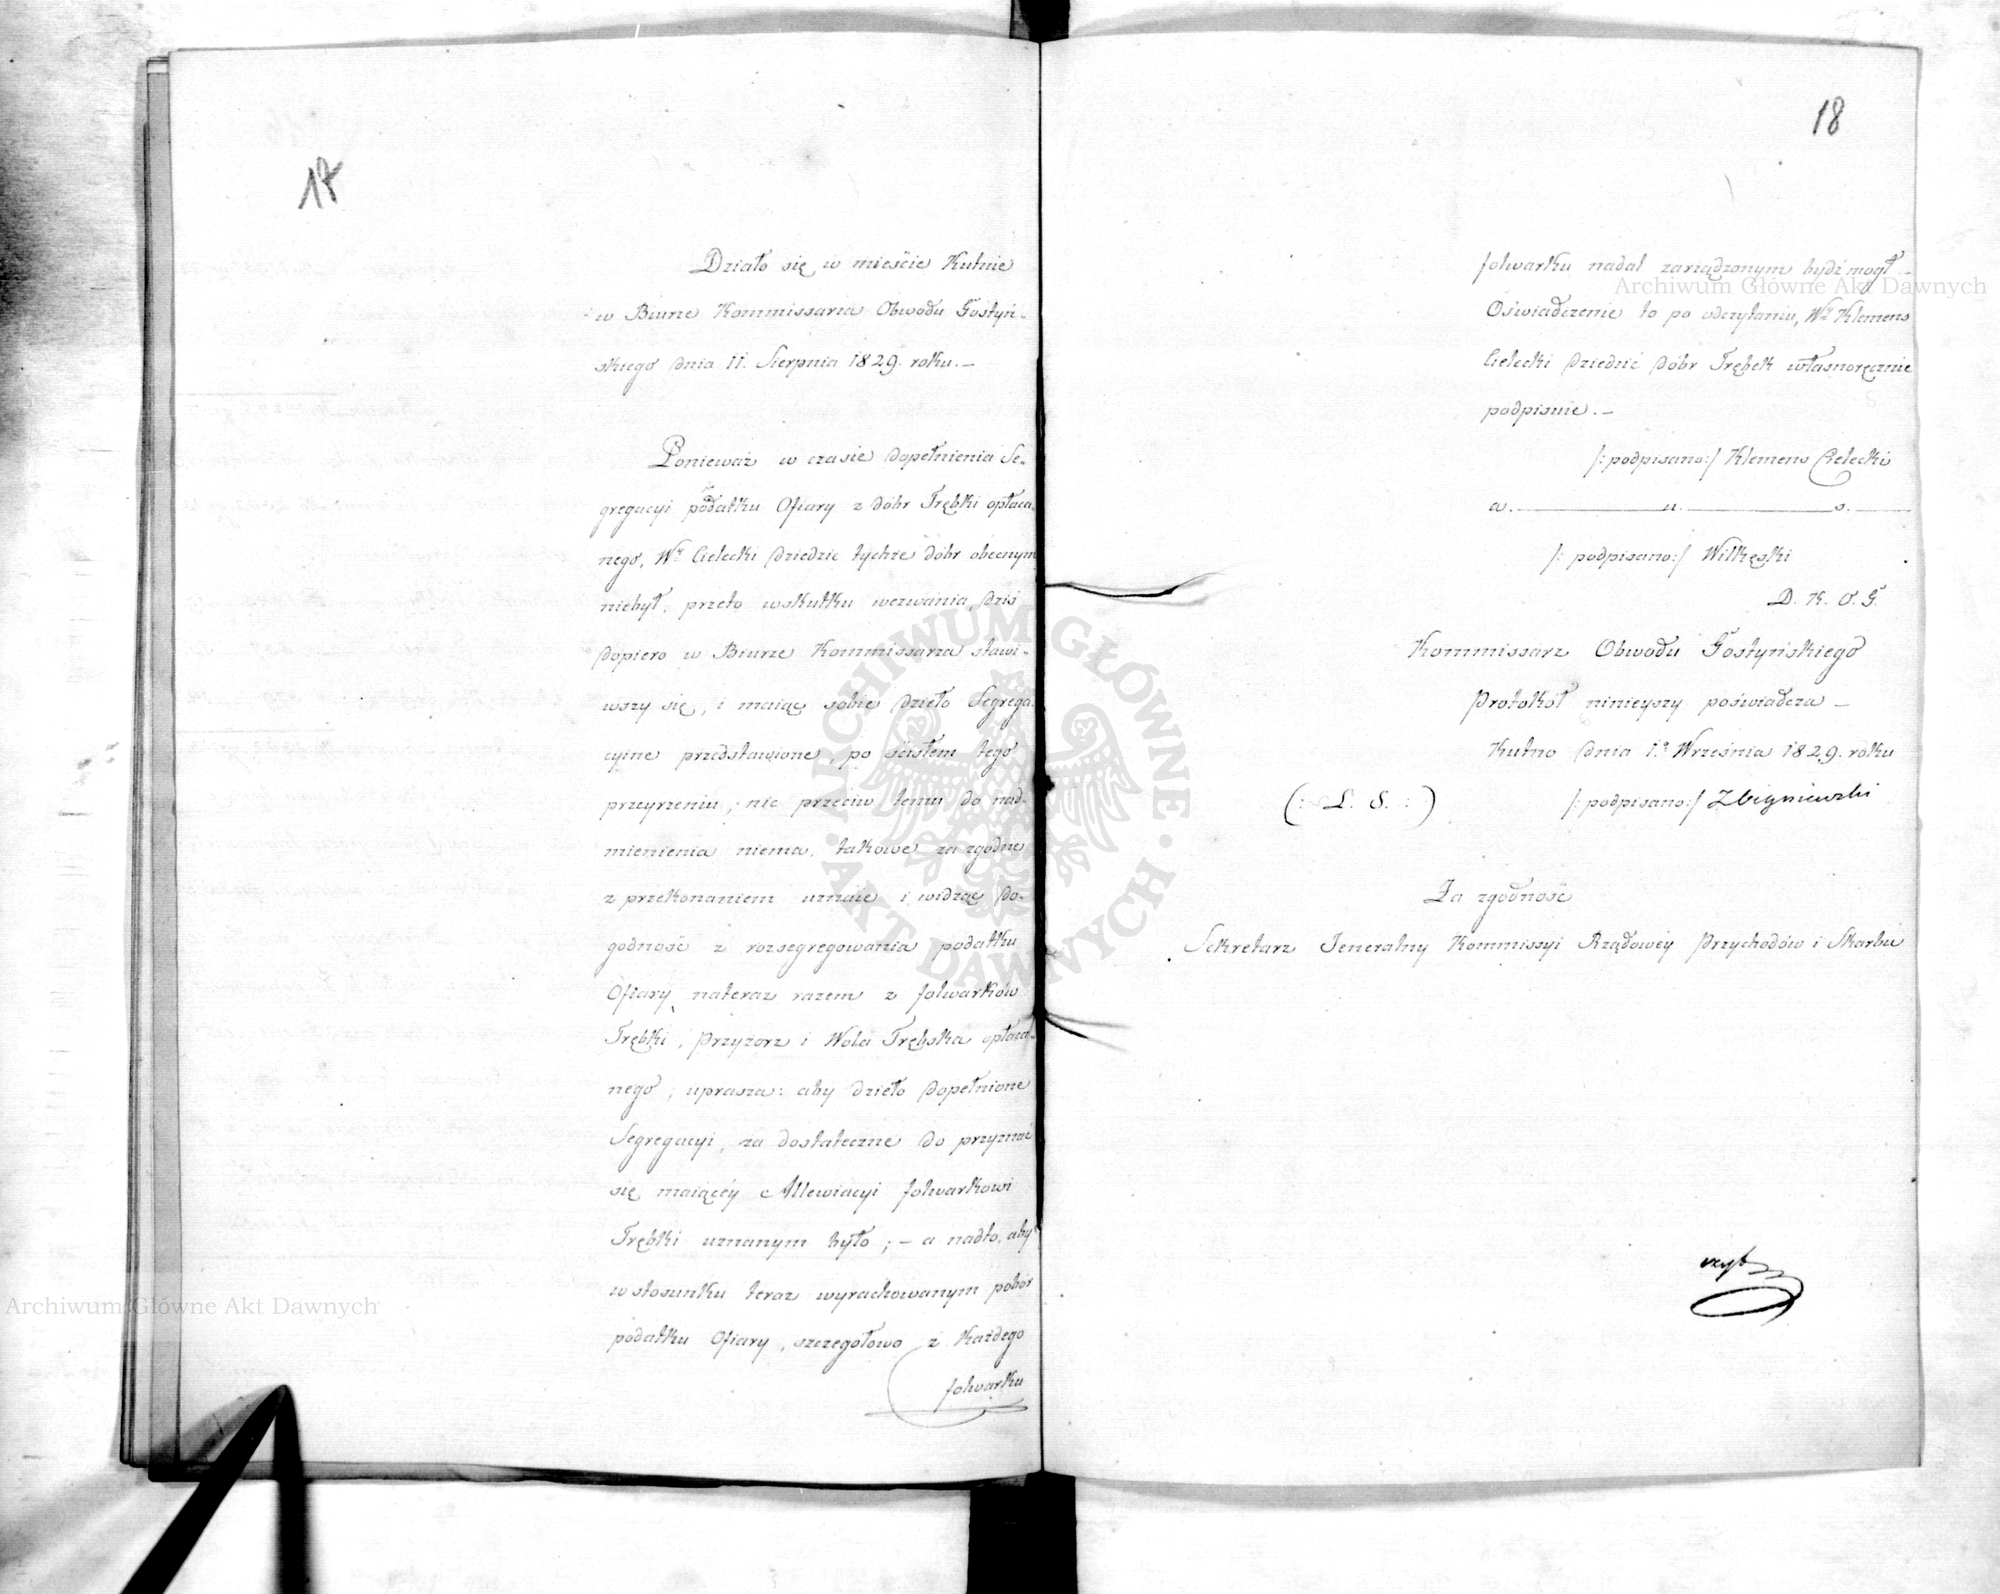 17
Działo się w mieście Kutnie
w Biurze Kommissarza Obwodu Gostyń-
skiego dnia 11. Sierpnia 1829. roku. —
Ponieważ w czasie dopełnienia Se-
gregacyi podatku Ofiary z dóbr Trębki opłaca-
nego, Wy Cielecki dziedzic tychże dóbr obecnym
niebył, przeto wskutku wezwania, dziś
dopiero w Biurze Kommissarza stawi-
wszy się, i maiąc sobie dzieło Segrega-
cyine przedstawione, po ścisłem tego
przeyrzeniu; nic przeciw temu do nad-
mienienia niema, takowe za zgodne
z przekonaniem uznaie i widząc do-
godność z rozsegregowania podatku
Ofiary nateraz razem z folwarków
Trębki, Przyżorz i Wola Trębska opłaca-
nego; uprasza: aby dzieło dopełnione
Segregacyi, za dostateczne do przyznać
się maiącéy Allewiacyi folwarkowi
Trębki uznanym było; — a nadto, aby
w stosunku teraz wyrachowanym pobór
podatku Ofiary, szczegołowo z każdego
folwarku
18
folwarku nadal zarządzonym bydź mogł —
Oświadczenie to po odczytaniu, Wy Klemens
Cielecki dziedzić dóbr Trębek własnoręcznie
podpisuie. —
/: podpisano:/ Klemens Cielecki
a. u. s.
/: podpisano:/ Wilkęski
D. K. O. G.
Kommissarz Obwodu Gostyńskiego
Protokół ninieyszy poświadcza —
Kutno dnia 1o Września 1829. roku
(: L. S. :) /: podpisano:/ Zbigniewski
Za zgodność
Sekretarz Jeneralny Kommissyi Rządowéy Przychodów i Skarbu
Archiwum Główne Akt Dawnych
Archiwum Główne Akt Dawnych
ARCHIWUM GŁÓWNE
AKT DAWNYCH